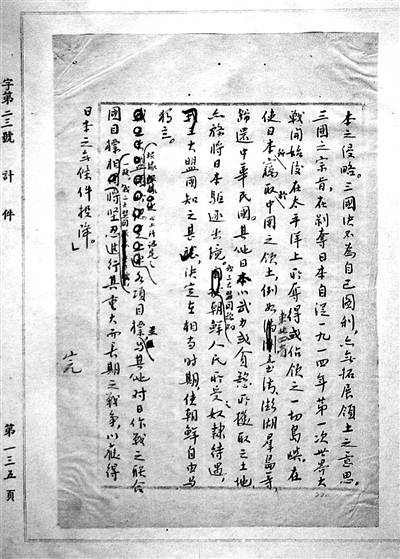 本之侵略。三國決不為自己圖利,亦無拓展領土之意思。
三國之宗旨,在剝奪日本自從一九一四年第一次世界大
戰開始後在太平洋上所奪得或佔領之一切島嶼,在
使日本所竊取於中國之領土,例如東北四省臺灣、澎湖群島等,
歸還中華民國。其他日本以武力或貪慾所攫取之土地,
亦務將日本驅逐出境。我三大盟國稔知朝鮮人民所受之奴隸待遇,
決定在相當時期,使朝鮮自由與
獨立。
各項目標並與其他對日作戰之聯合
國目標相一致,我三大盟國將堅忍進行其重大而長期之戰爭,以獲得
日本之無條件投降。」
完
字第二三號 計 件
第一三五頁